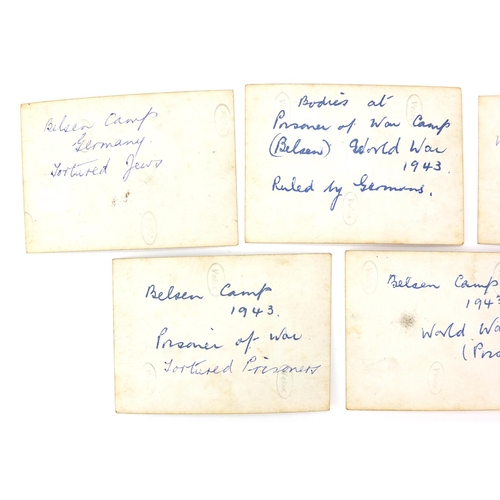 Belsen Camp
Germany.
Tortured Jews
Bodies at
Prisoner of War Camp
(Belsen) World War
1943.
Ruled by Germans.
Belsen Camp
1943.
Prisoner of War
Tortured Prisoners
Belsen Camp
1943
World Wa
(Priso